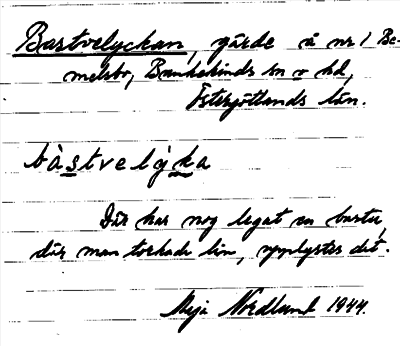 Bastvelyckan, gärde å nr 1 Be-
melsbo, Bankekinds sn o hd,
Östergötlands län.
bàstvelỳka
Där har nog legat en bastu,
där man torkade lin, upplystes det.
Meja Nordlund 1944.